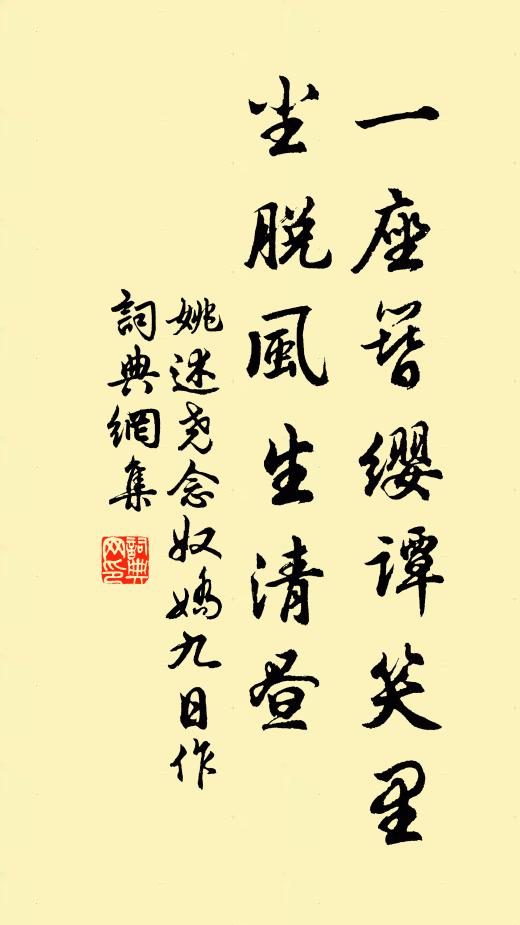 一座簪缨譚笑里
坐脱風生清昼
姚述尧念奴嬌九日作
詞典網集
詞典网印